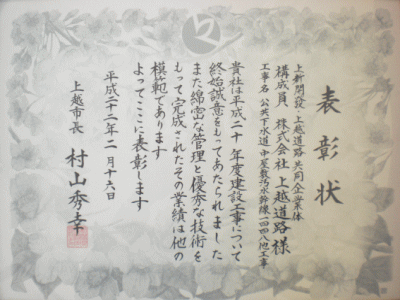 表彰状
上新開設 上越道路 共同企業体
構成員 株式会社 上越道路 様
工事名 公共下水道中屋敷汚水幹線
貴社は平成二十年度建設工事について
終始誠意をもってあたられました
また綿密な管理と優秀な技術を
もって完成されたその業績は他の
模範であります
よってここに表彰します
平成二十二年二月十六日
上越市長 村山秀幸